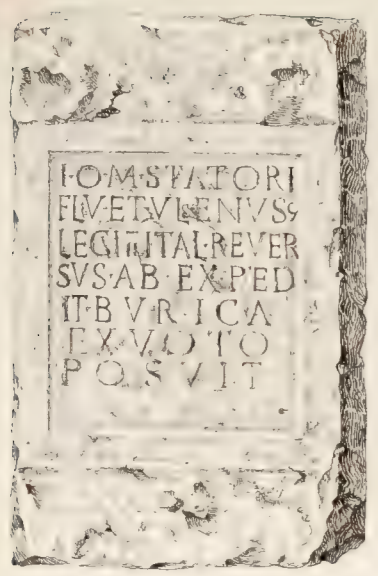 I·O·M·STATORI
FLV·ETVLENVS
LEG·III·ITAL·REVER
SVS·AB·EXPED
IT·BVRICA
EX VOTO
POSVIT